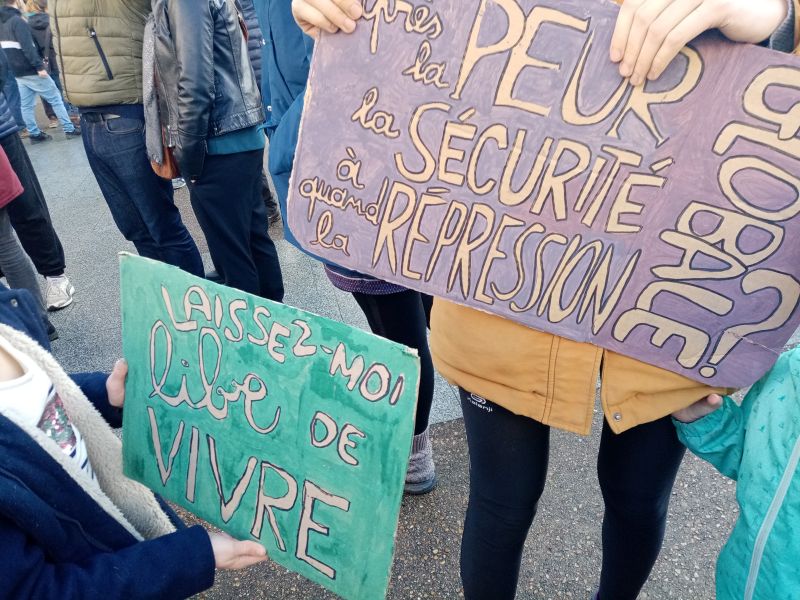 après la PEUR
la SÉCURITÉ
à quand la RÉPRESSION
GLOBALE?!
LAISSEZ-MOI
libre DE
VIVRE